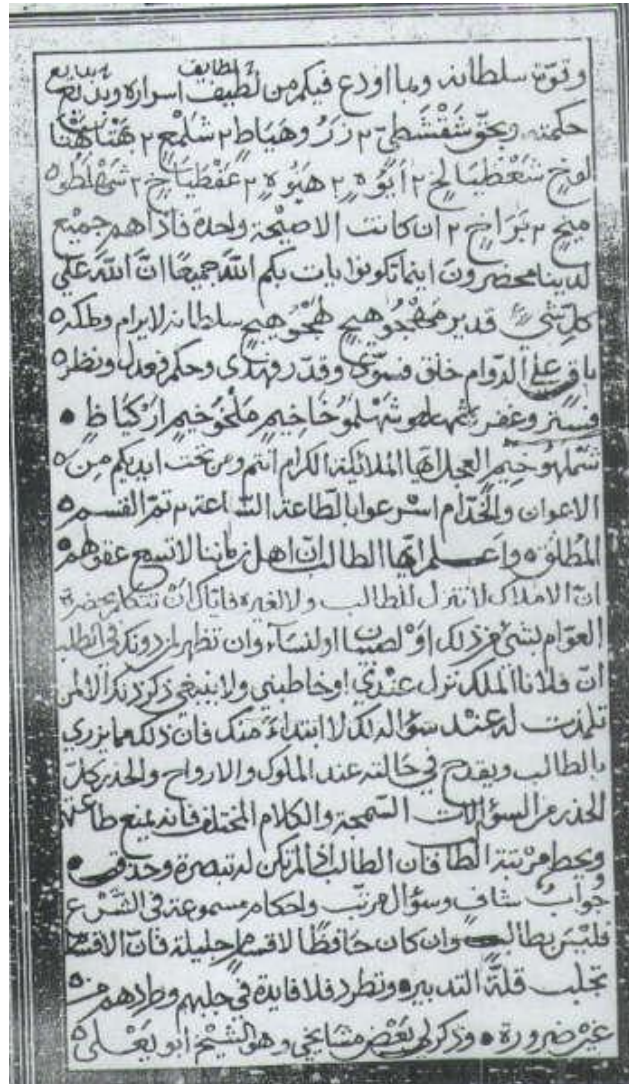 وقوة سلطانه وبما اودع فيكم من لطيف اسراره وبديع
حكمته وبحق شقشطى ٢ زر وهياط ٢ شلمع ٢ هنا
لوخ شغظيالخ ٢ ايوه ٢ هيوه ٢ عفظياخ ٢
ميخ ٢ براخ ٢ ان كانت الا صيحة واحدة فاذا هم جميع
لدينا محضرون اينما تكونوا يات بكم الله جميعا ان الله على
كل شيء قدير مهفجوهيج هيج سلطانه لا يرام وملكه
باق على الدوام خلق فسوى وقدر فهدى وحكم فعدل ونظر
فستر وغفر شلموخاخيم ملخوخيم اركياظ
العجل ايها الملائكة الكرام انتم ومن تحت ايديكم من
الاعوان والخدام اسرعوا بالطاعة الساعة ٢ تم القسم
المطلق واعلم ايها الطالب ان اهل زماننا لا تسع عقولهم
ان الاملاك لا تنزل للطالب ولا لغيره فاياك ان تتكلم بحضرة
العوام بشئ من ذلك او لصبيان او لنساء وان تظهر لمن دونك في الطلب
ان فلانا الملك نزل عندي او خاطبني ولا ينبغي ذكر ذلك الا لمن
تلمذت له عند سؤاله لك لا ابتداء منك فان ذلك مما يزري
بالطالب ويقدح في حالته عند الملوك والارواح والحذر كل
الحذر من السؤالات السمجة والكلام المختلف فانه يمنع طاعتها
ويحط مرتبة الطالب فان الطالب اذا لم تكن له تبصرة وحذق
وجواب شاف وسؤال مرتب واحكام مسموعة في الشرع
فليس بطالب وان كان حافظا لاقسام جليلة فان الاقسام
تجلب قلة التدبير وتطرد فلا فايدة في جلبهم وطردهم من
غير ضرورة وذكر لي بعض مشايخي وهو الشيخ ابو يعلى